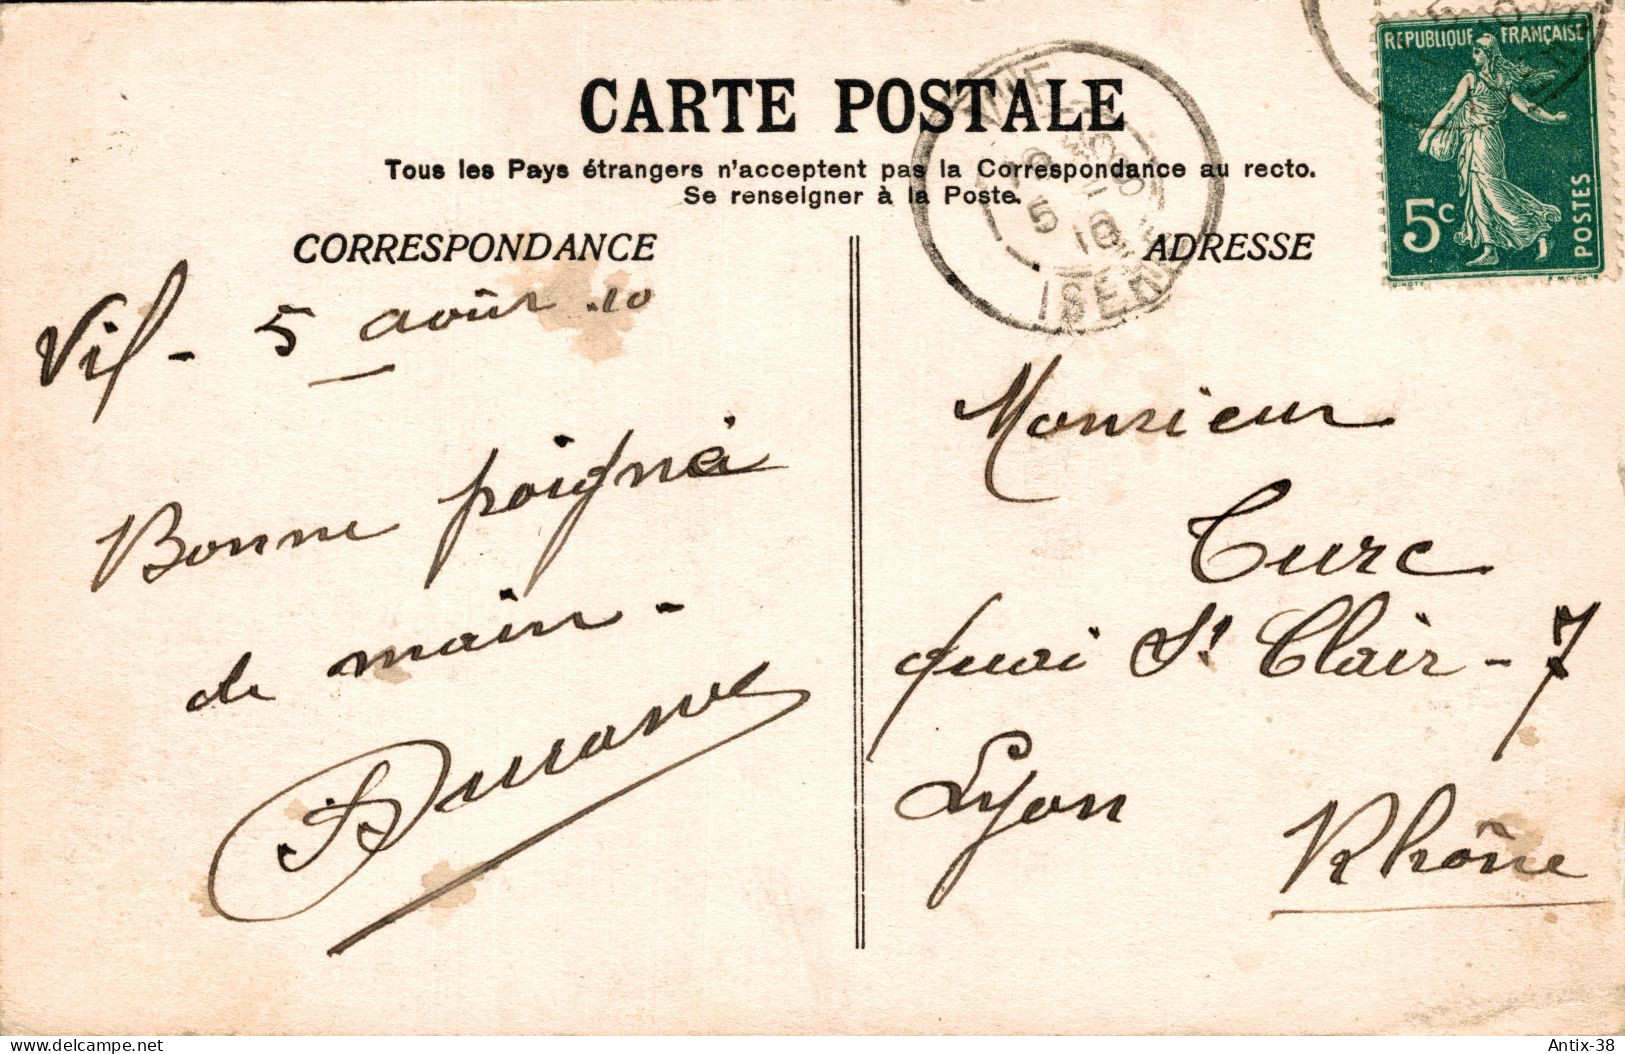 CARTE POSTALE
Tous les Pays étrangers n'acceptent pas la Correspondance au recto.
Se renseigner à la Poste.
CORRESPONDANCE
Vif - 5 août .10
Bonne poignée
de main -
Durand
ADRESSE
Monsieur
Turc
quai St Clair - 7
Lyon
Rhône
REPUBLIQUE FRANÇAISE
5c
POSTES
VIF
5
10
ISERE
delcampe.net
Antix-38